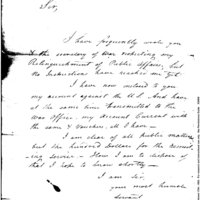 Sir,
I have frequently wrote you
to the secretary of War respecting my
Relinquishment of Public Affairs, but
no Instructions have reached me yet.
I have now inclosed to you
my account against the U.S. And have
at the same time transmitted to the
War office, my Account Current with
the same & Vouchers, all I have
I am clear of all Public matters
but the hundred Dollars for the
service - How I am to dispose of
that I wish to know shortly -
I am Sir,
your most humble
Servant